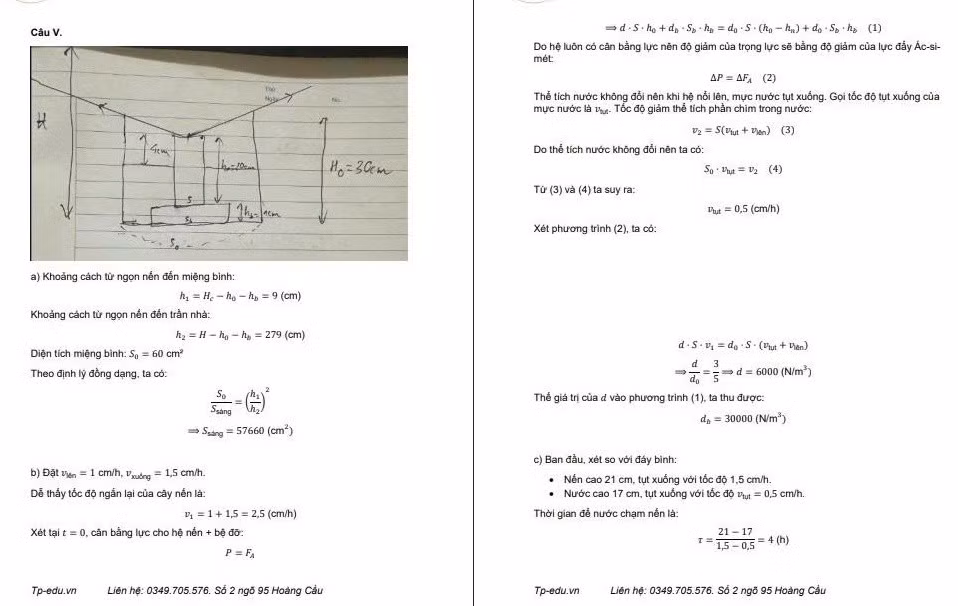 Câu V.
Thứ
Ngày
No.
H
4cm
h₀=20cm
H₀=30cm
S
h_b=1cm
S_b
S₀
a) Khoảng cách từ ngọn nến đến miệng bình:
h₁ = H_c − h₀ − h_b = 9 (cm)
Khoảng cách từ ngọn nến đến trần nhà:
h₂ = H − h₀ − h_b = 279 (cm)
Diện tích miệng bình: S₀ = 60 cm²
Theo định lý đồng dạng, ta có:
S₀/S_sáng = (h₁/h₂)²
⟹ S_sáng = 57660 (cm²)
b) Đặt v_lên = 1 cm/h, v_xuống = 1,5 cm/h.
Dễ thấy tốc độ ngắn lại của cây nến là:
v₁ = 1 + 1,5 = 2,5 (cm/h)
Xét tại t = 0, cân bằng lực cho hệ nến + bệ đỡ:
P = F_A
Tp-edu.vn Liên hệ: 0349.705.576. Số 2 ngõ 95 Hoàng Cầu
⟹ d · S · h₀ + d_b · S_b · h_b = d₀ · S · (h₀ − h_n) + d₀ · S_b · h_b (1)
Do hệ luôn có cân bằng lực nên độ giảm của trọng lực sẽ bằng độ giảm của lực đẩy Ác-si-
mét:
ΔP = ΔF_A (2)
Thể tích nước không đổi nên khi hệ nổi lên, mực nước tụt xuống. Gọi tốc độ tụt xuống của
mực nước là v_tụt. Tốc độ giảm thể tích phần chìm trong nước:
v₂ = S(v_tụt + v_lên) (3)
Do thể tích nước không đổi nên ta có:
S₀ · v_tụt = v₂ (4)
Từ (3) và (4) ta suy ra:
v_tụt = 0,5 (cm/h)
Xét phương trình (2), ta có:
d · S · v₁ = d₀ · S · (v_tụt + v_lên)
⟹ d/d₀ = 3/5 ⟹ d = 6000 (N/m³)
Thế giá trị của d vào phương trình (1), ta thu được:
d_b = 30000 (N/m³)
c) Ban đầu, xét so với đáy bình:
• Nến cao 21 cm, tụt xuống với tốc độ 1,5 cm/h.
• Nước cao 17 cm, tụt xuống với tốc độ v_tụt = 0,5 cm/h.
Thời gian để nước chạm nến là:
τ = (21 − 17)/(1,5 − 0,5) = 4 (h)
Tp-edu.vn Liên hệ: 0349.705.576. Số 2 ngõ 95 Hoàng Cầu